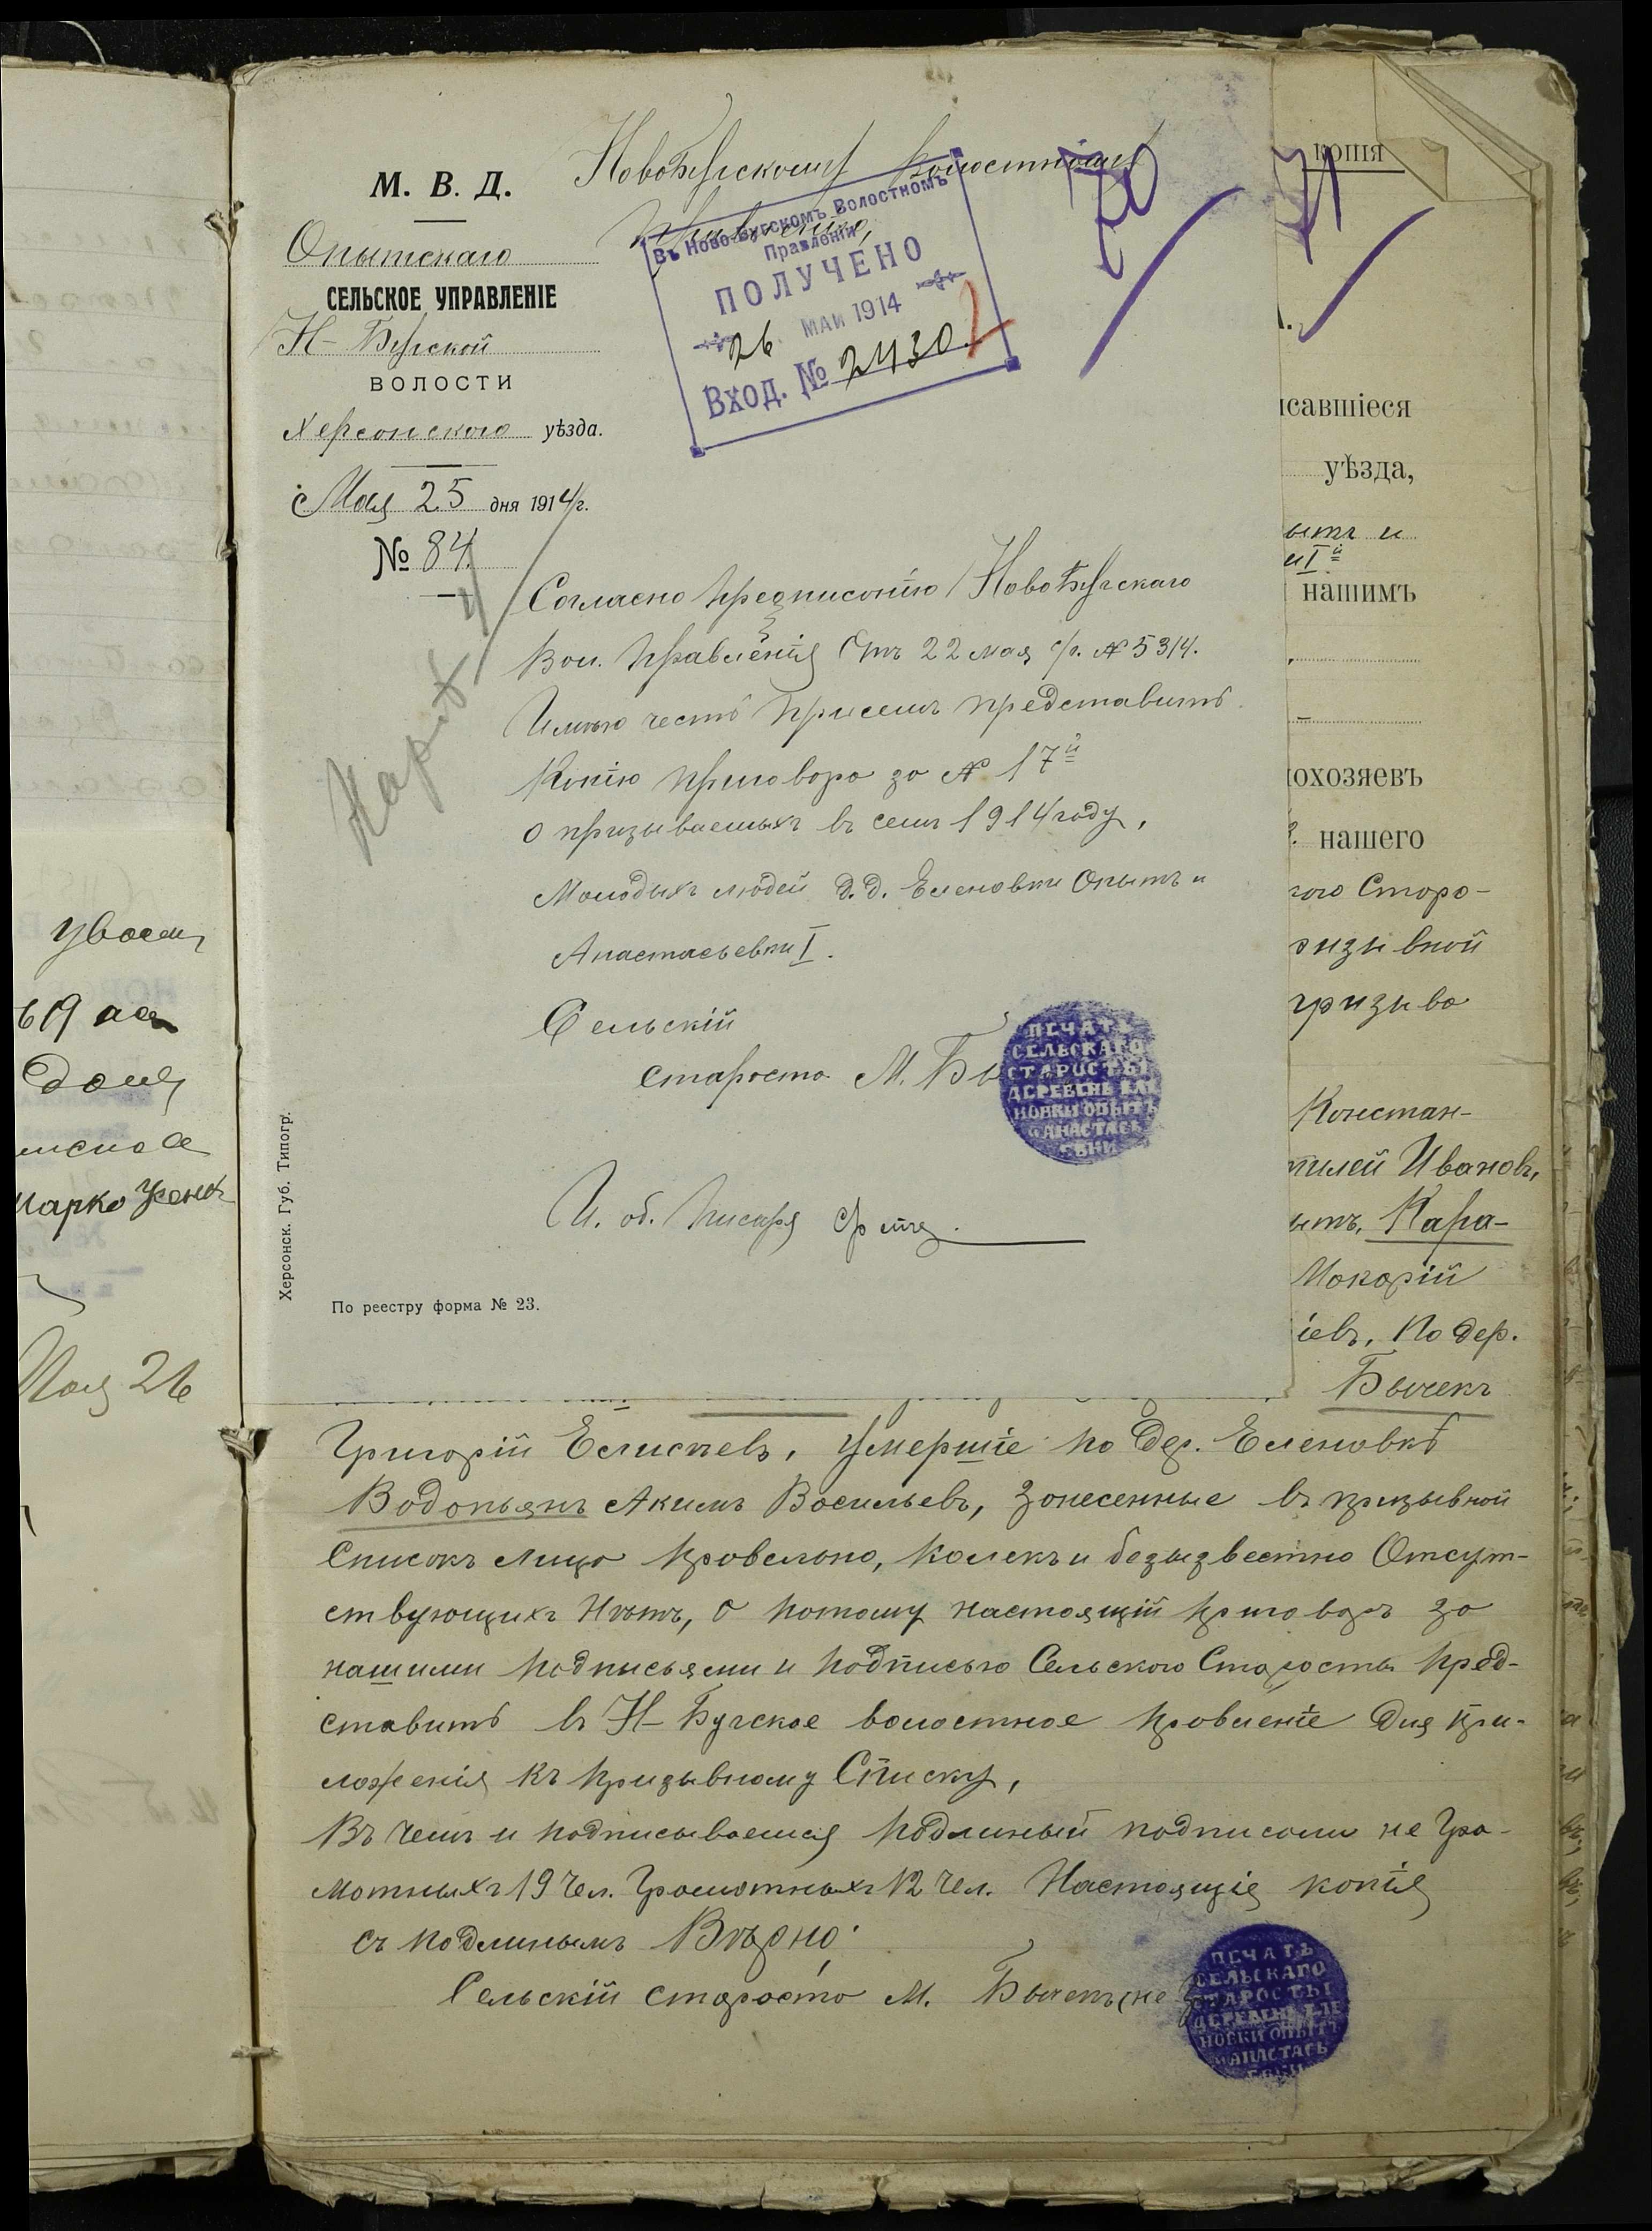 увоем
69
дому
Марко
Мая 26
М. В. Д.
Опытскаго
СЕЛЬСКОЕ УПРАВЛЕНІЕ
Н-Бугской
ВОЛОСТИ
Херсонского уѣзда.
Мая 25 дня 1914 г.
№ 84.
НовоБугскому Волостному
Правленію,
Въ Ново-Бугскомъ Волостномъ
Правленіи
ПОЛУЧЕНО
26 МАЙ 1914
Вход. № 2430
70
Согласно предписонію НовоБугскаго
Вол. Правленія Отъ 22 мая с/г. № 5314.
Имѣю честь присемъ представить
Копію приговоро зо № 17й
о призываемыхъ въ семъ 1914 году,
Молодыхъ людей д.д. Еленовки Опытъ и
Анастасьевки I.
Сельскій
старосто М. Бы
ПЕЧАТЬ
СЕЛЬСКАГО
СТАРОСТЫ
ДЕРЕВЕНЬ ЕЛЕ
НОВКИ ОПЫТЪ
И АНАСТАСЬ
ЕВКИ
И. об. Писаря
Херсонск. Губ. Типогр.
По реестру форма № 23.
копія
71
исавшіеся
уѣзда,
ытъ и
и I й
нашимъ
охозяевъ
нашего
кого Старо-
ризывной
призыво
Констан-
тилей Ивановъ,
ытъ, Кара-
Мокорій
іевъ, По дер.
Бычекъ
Григорій Елисѣевъ, Умершіе по Дер. Еленовкѣ
Водопьянъ Акимъ Восильевъ, Зонесенные въ призывной
Списокъ лицо провельно, колекъ и безызвестно Отсут-
ствующихъ Нѣтъ, о потому настоящій приговоръ зо
нашими подписьями и подписью Сельского Старосты пред-
ставить въ Н-Бугское волостное провленіе для при-
ложенія къ призывному Списку,
Въ чемъ и подписываемся подлиный подписоли не Гро-
мотныхъ 19 Чел. Громотныхъ 12 Чел. Настоящія копія
съ подлинымъ Вѣрно:
Сельскій старосто М. Бычекъ (не
ПЕЧАТЬ
СЕЛЬСКАГО
СТАРОСТЫ
ДЕРЕВЕНЬ ЕЛЕ
НОВКИ ОПЫТЪ
И АНАСТАСЬ
ЕВКИ